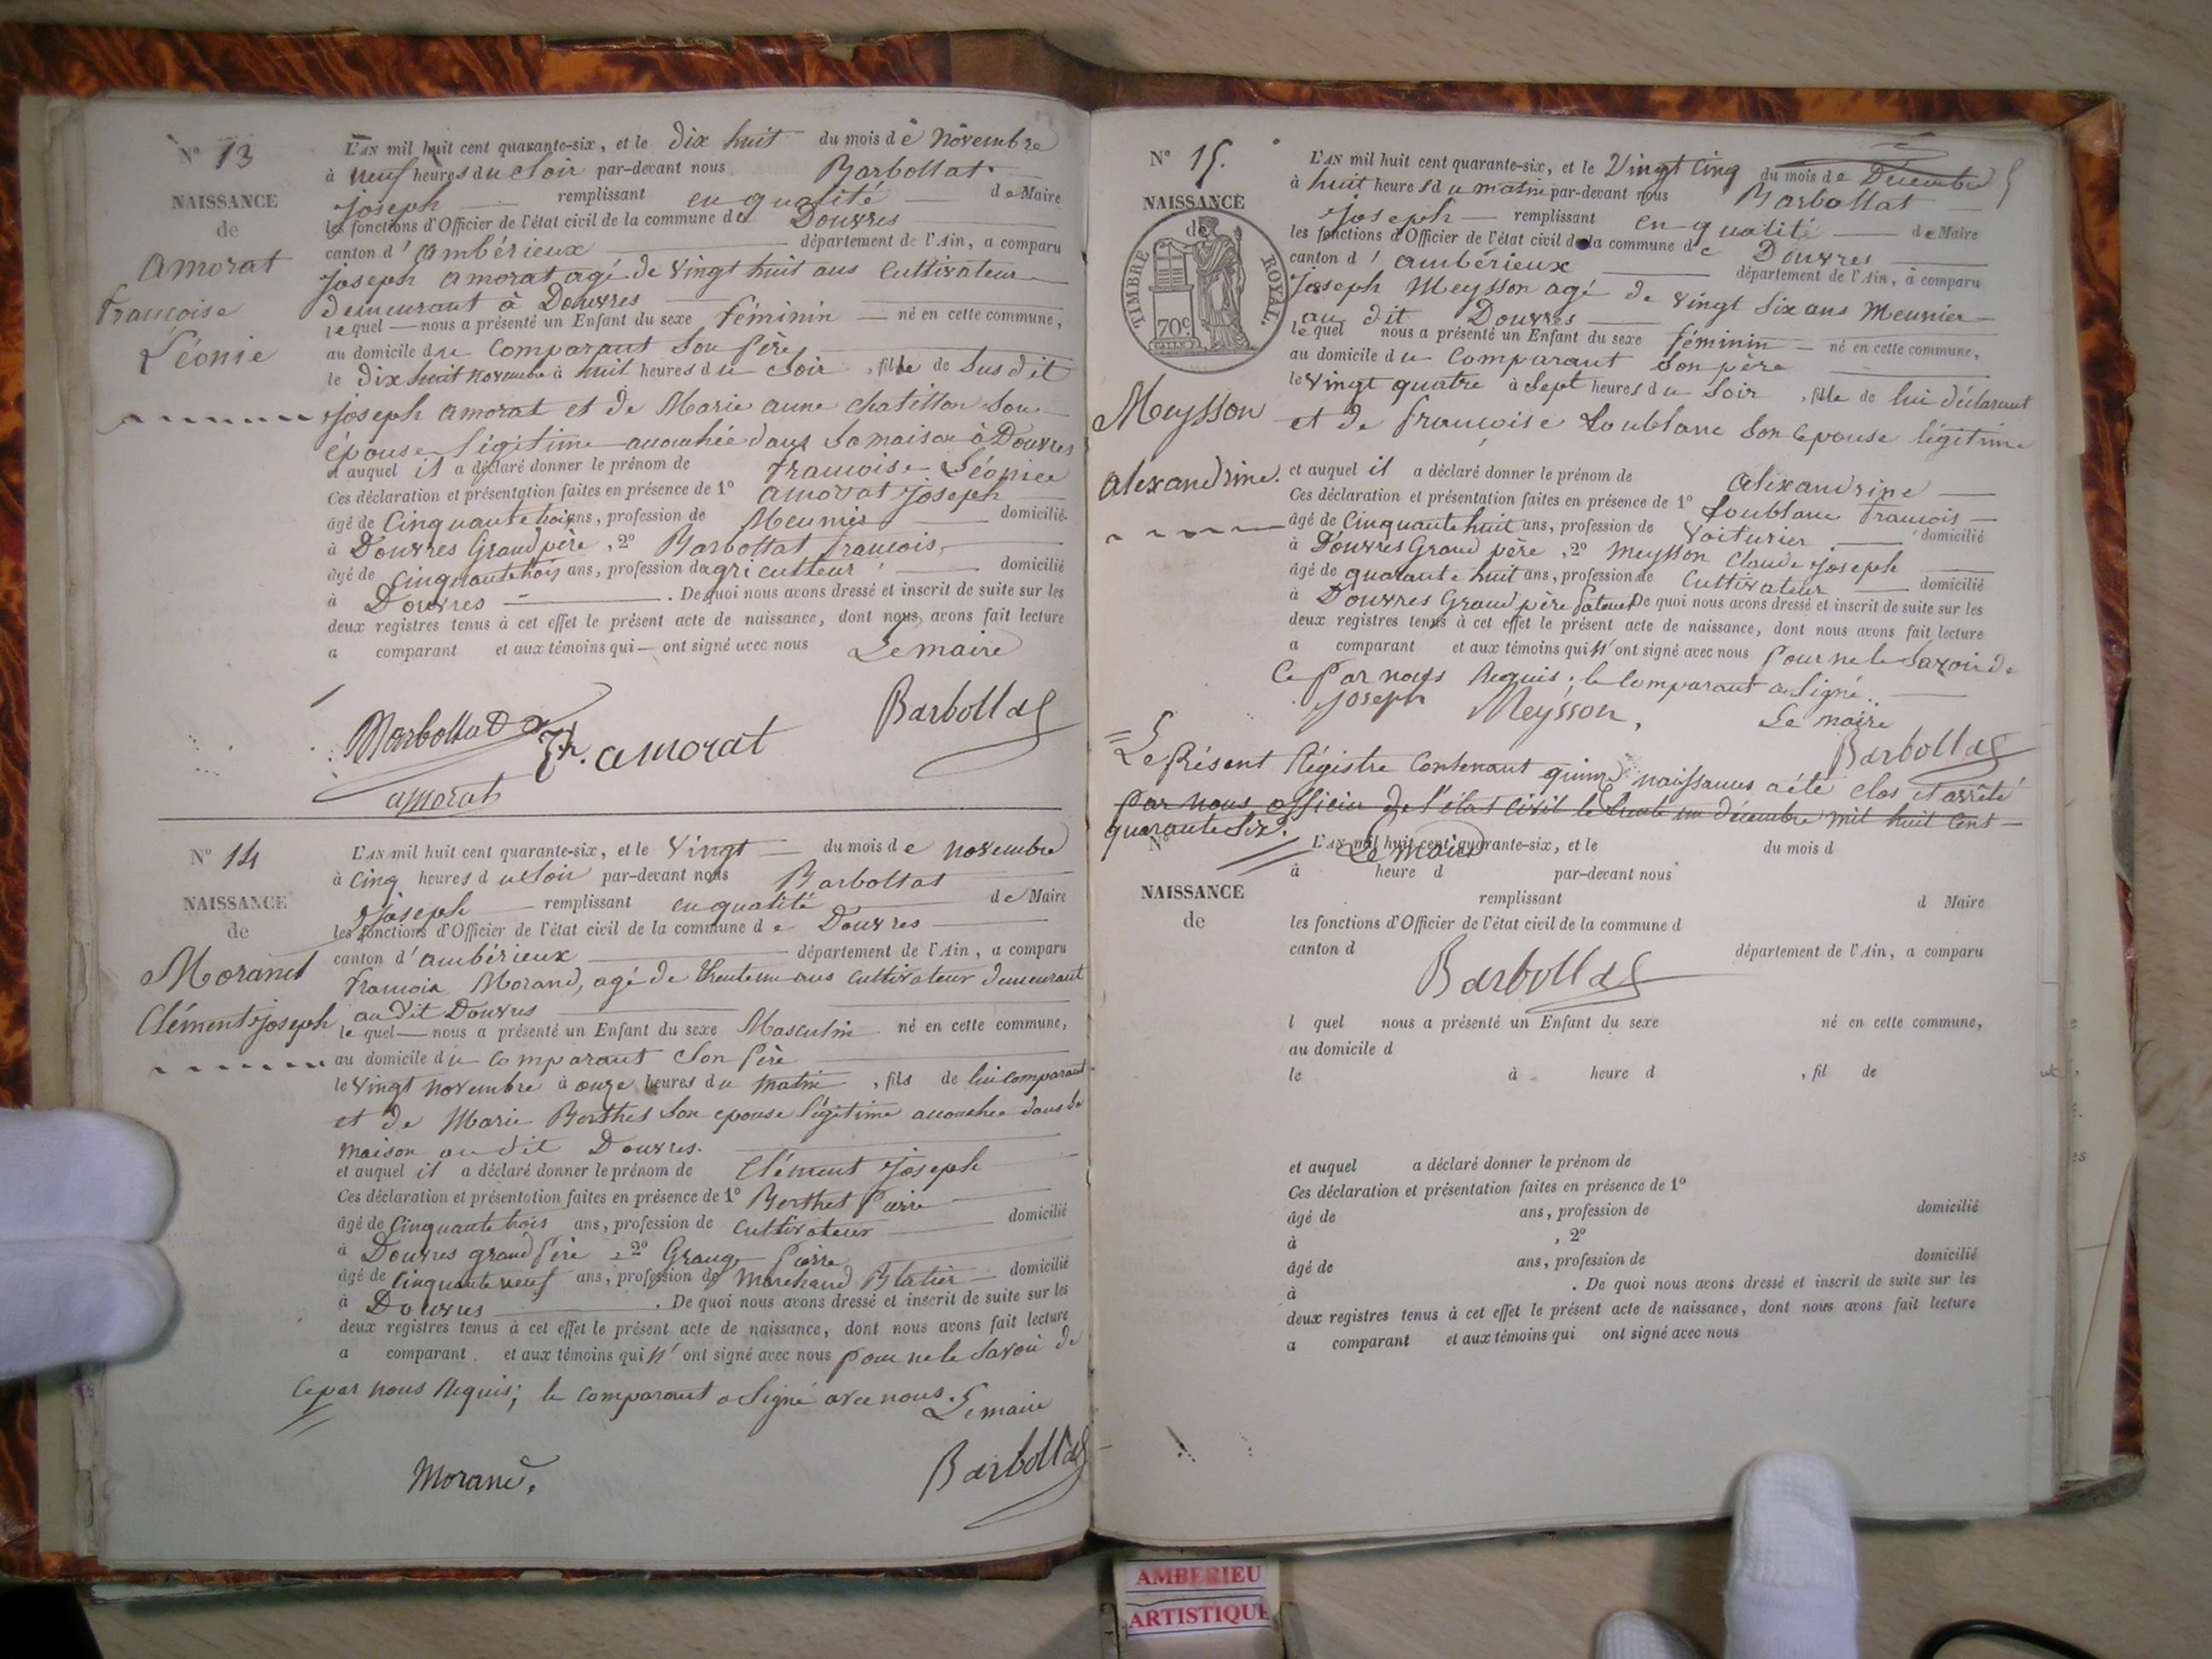 N° 13
NAISSANCE
de
Amorat
françoise
Léonie
L'AN mil huit cent quarante-six, et le dix huit du mois de Novembre
à neuf heures du soir par-devant nous Barbollat
joseph remplissant en qualité de Maire
les fonctions d'Officier de l'état civil de la commune de Douvres
canton d'ambérieux département de l'Ain, a comparu
joseph amorat agé de vingt huit ans cultivateur
demeurant à Douvres
lequel nous a présenté un Enfant du sexe féminin né en cette commune,
au domicile du comparant son père
le dix huit novembre à huit heures du soir, fille de susdit
joseph amorat et de Marie anne chatillon son
épouse légitime accouchée dans sa maison à Douvres
et auquel il a déclaré donner le prénom de françoise Léonie
Ces déclaration et présentation faites en présence de 1° amorat joseph
âgé de cinquante trois ans, profession de Meunier domicilié
à Douvres Grand père, 2° Barbollat francois
âgé de cinquante trois ans, profession dagriculteur domicilié
à Douvres. De quoi nous avons dressé et inscrit de suite sur les
deux registres tenus à cet effet le présent acte de naissance, dont nous avons fait lecture
a comparant et aux témoins qui ont signé avec nous Le maire
Barbollat
Barbollat
Jh. amorat
amorat
N° 14
NAISSANCE
de
Morand
Clément joseph
L'AN mil huit cent quarante-six, et le vingt du mois de novembre
à cinq heures du soir par-devant nous Barbollat
joseph remplissant en qualité de Maire
les fonctions d'Officier de l'état civil de la commune de Douvres
canton d'ambérieux département de l'Ain, a comparu
francois Morand, agé de trente un ans cultivateur demeurant
au dit Douvres
lequel nous a présenté un Enfant du sexe Masculin né en cette commune,
au domicile du comparant son père
le vingt novembre à onze heures du matin, fils de lui comparant
et de Marie Berthet son epouse légitime accouchee dans sa
maison au dit Douvres.
et auquel il a déclaré donner le prénom de clément joseph
Ces déclaration et présentation faites en présence de 1° Berthet Pierre
âgé de cinquante trois ans, profession de cultivateur domicilié
à Douvres grand père, 2° Grange Pierre
âgé de cinquante neuf ans, profession de Marchand domicilié
à Douvres. De quoi nous avons dressé et inscrit de suite sur les
deux registres tenus à cet effet le présent acte de naissance, dont nous avons fait lecture
a comparant et aux témoins qui n'ont signé avec nous pour ne le savoir de
ce par nous requis; le comparant a signé avec nous. Le maire
Morand.
Barbollat
N° 15.
NAISSANCE
de
TIMBRE ROYAL.
70c.
Meysson
alexandrine.
L'AN mil huit cent quarante-six, et le vingt cinq du mois de Decembre
à huit heures du matin par-devant nous Barbollat
joseph remplissant en qualité de Maire
les fonctions d'Officier de l'état civil de la commune de Douvres
canton d'ambérieux département de l'Ain, à comparu
joseph Meysson agé de vingt six ans Meunier
au dit Douvres
lequel nous a présenté un Enfant du sexe féminin né en cette commune,
au domicile du comparant son père
le vingt quatre à sept heures du soir, fille de lui déclarant
et de françoise Loublanc son epouse légitime
et auquel il a déclaré donner le prénom de alexandrine
Ces déclaration et présentation faites en présence de 1° Loublanc francois
âgé de cinquante huit ans, profession de voiturier domicilié
à Douvres Grand père, 2° Meysson claude joseph
âgé de quarante huit ans, profession de cultivateur domicilié
à Douvres Grand père paternel De quoi nous avons dressé et inscrit de suite sur les
deux registres tenus à cet effet le présent acte de naissance, dont nous avons fait lecture
a comparant et aux témoins qui n'ont signé avec nous pour ne le savoir de
ce par nous requis; le comparant a signé.
joseph Meysson, Le maire
Barbollat
Le présent régistre contenant quinze naissances a été clos et arrêté
par nous officier de l'état civil le trente un décembre mil huit cent
quarante six.
Le maire
N°
NAISSANCE
de
L'AN mil huit cent quarante-six, et le du mois d
à heure d par-devant nous
remplissant d Maire
les fonctions d'Officier de l'état civil de la commune d
canton d département de l'Ain, a comparu
Barbollat
l quel nous a présenté un Enfant du sexe né en cette commune,
au domicile d
le à heure d, fil de
et auquel a déclaré donner le prénom de
Ces déclaration et présentation faites en présence de 1°
âgé de ans, profession de domicilié
à , 2°
âgé de ans, profession de domicilié
à . De quoi nous avons dressé et inscrit de suite sur les
deux registres tenus à cet effet le présent acte de naissance, dont nous avons fait lecture
a comparant et aux témoins qui ont signé avec nous
AMBERIEU
ARTISTIQUE